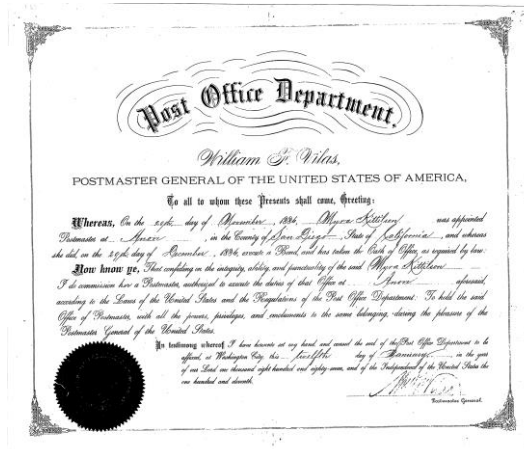 Post Office Department.
William F. Vilas,
POSTMASTER GENERAL OF THE UNITED STATES OF AMERICA,
To all to whom these Presents shall come, Greeting:
Whereas, On the 29th day of November, 1886, Myra Kittilson was appointed
Postmaster at , in the County of San Diego State of California, and whereas
she did, on the day of December, 1886, execute a Bond, and has taken the Oath of Office, as required by law:
Now know ye, That confiding in the integrity, ability, and punctuality of the said Myra Kittilson
I do commission her a Postmaster, authorized to execute the duties of that Office at aforesaid,
according to the Laws of the United States and the Regulations of the Post Office Department: To hold the said
Office of Postmaster, with all the powers, privileges, and emoluments to the same belonging, during the pleasure of the
Postmaster General of the United States.
In testimony whereof, I have hereunto set my hand and caused the seal of the Post Office Department to be
affixed, at Washington City, this twelfth day of January in the year
of our Lord one thousand eight hundred and eighty-seven, and of the Independence of the United States the
one hundred and eleventh.
Postmaster General.